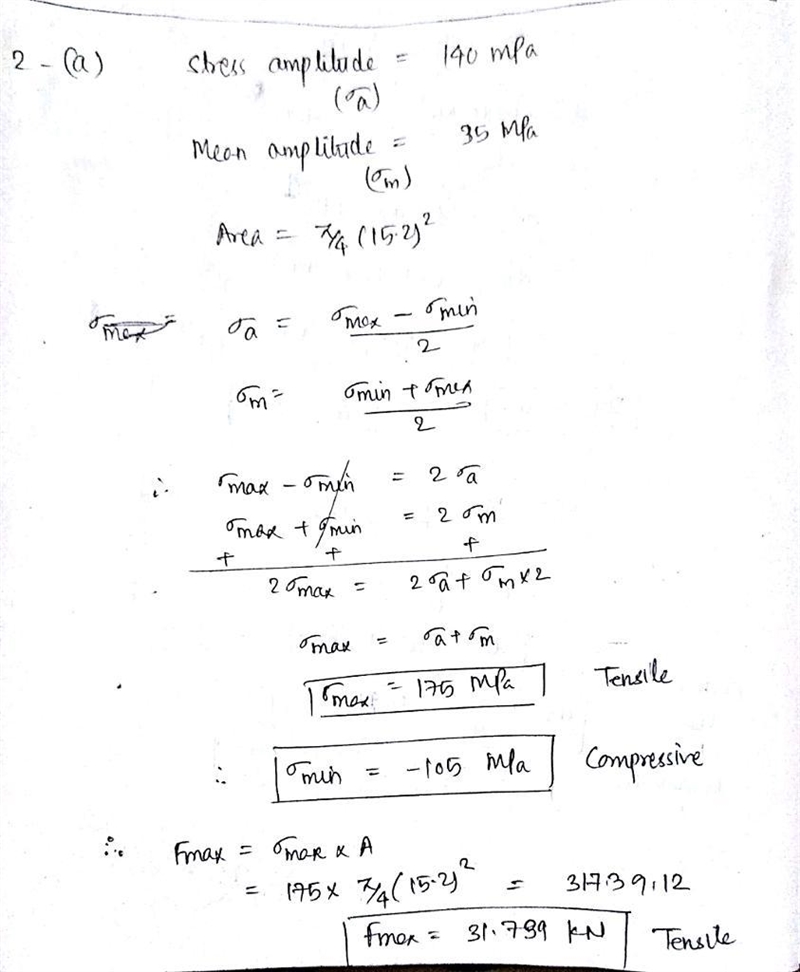 2 - (a) Stress amplitude = 140 mPa
(σa)
Mean amplitude = 35 MPa
(σm)
Area = π/4 (15.2)²
σmax = σa = σmax - σmin / 2
σm = σmin + σmax / 2
∴ σmax - σmin = 2 σa
σmax + σmin = 2 σm
+ + +
2 σmax = 2 σa + σm x 2
σmax = σa + σm
σmax = 175 MPa Tensile
∴ σmin = -105 MPa Compressive
∴ Fmax = σmax x A
= 175 x π/4 (15.2)² = 31739.12
Fmax = 31.739 kN Tensile